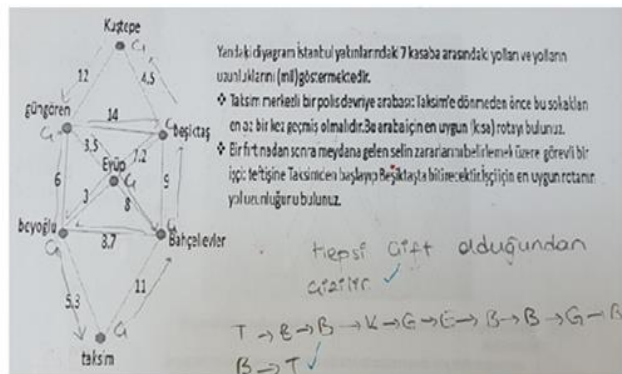 Kuştepe
12
4.5
güngören
14
beşiktaş
3.5
7.2
Eyüp
6
3
8
9
beyoğlu
8.7
Bahçelievler
5.3
11
taksim
Yandaki diyagram İstanbul yakınlarındaki 7 kasaba arasındaki yolları ve yolların
uzunluklarını (mil) göstermektedir.
❖ Taksim merkezli bir polis devriye arabası Taksim'e dönmeden önce bu sokakları
en az bir kez geçmiş olmalıdır. Bu araba için en uygun (kısa) rotayı bulunuz.
❖ Bir fırtınadan sonra meydana gelen selin zararlarını belirlemek üzere görevli bir
işçi teftişine Taksimden başlayıp Beşiktaşta bitirecektir. İşçi için en uygun rotanın
yol uzunluğunu bulunuz.
Hepsi çift olduğundan
çizilir ✓
T → B → B → K → G → E → B → B → G → B
B → T ✓